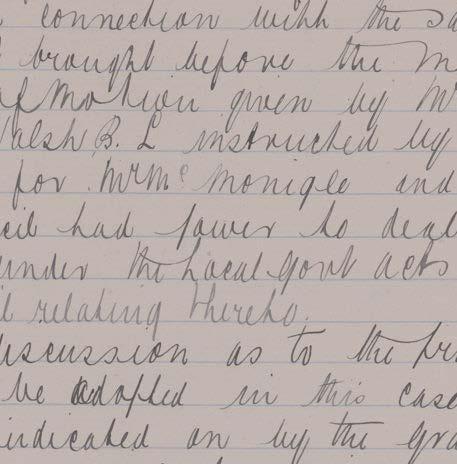 connection with the sa
brought before the m
of Motion given by Mr
Walsh B. L instructed by
for Mr Mc Monigle and
cil had power to deal
under the Local Govt acts
relating thereto.
discussion as to the pr
be adopted in this case
indicated on by the gra